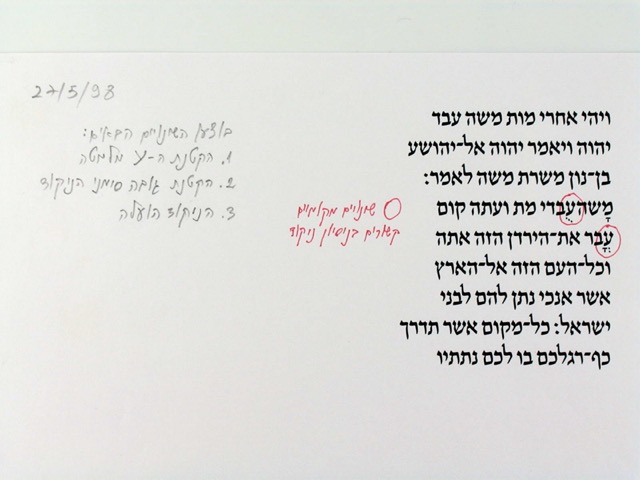 27/5/98
בוצעו השינויים הבאים:
1. הקטנת ה-ע מלמטה
2. הקטנת גובה סימני הניקוד
3. הניקוד הועלה
שינויים מקומיים
קשורים בניסיון ניקוד
ויהי אחרי מות משה עבד
יהוה ויאמר יהוה אל־יהושע
בן־נון משרת משה לאמר:
מָשה עֲבדי מת ועתה קום
עֲבָר את־הירדן הזה אתה
וכל־העם הזה אל־הארץ
אשר אנכי נתן להם לבני
ישראל: כל־מקום אשר תדרך
כף־רגלכם בו לכם נתתיו